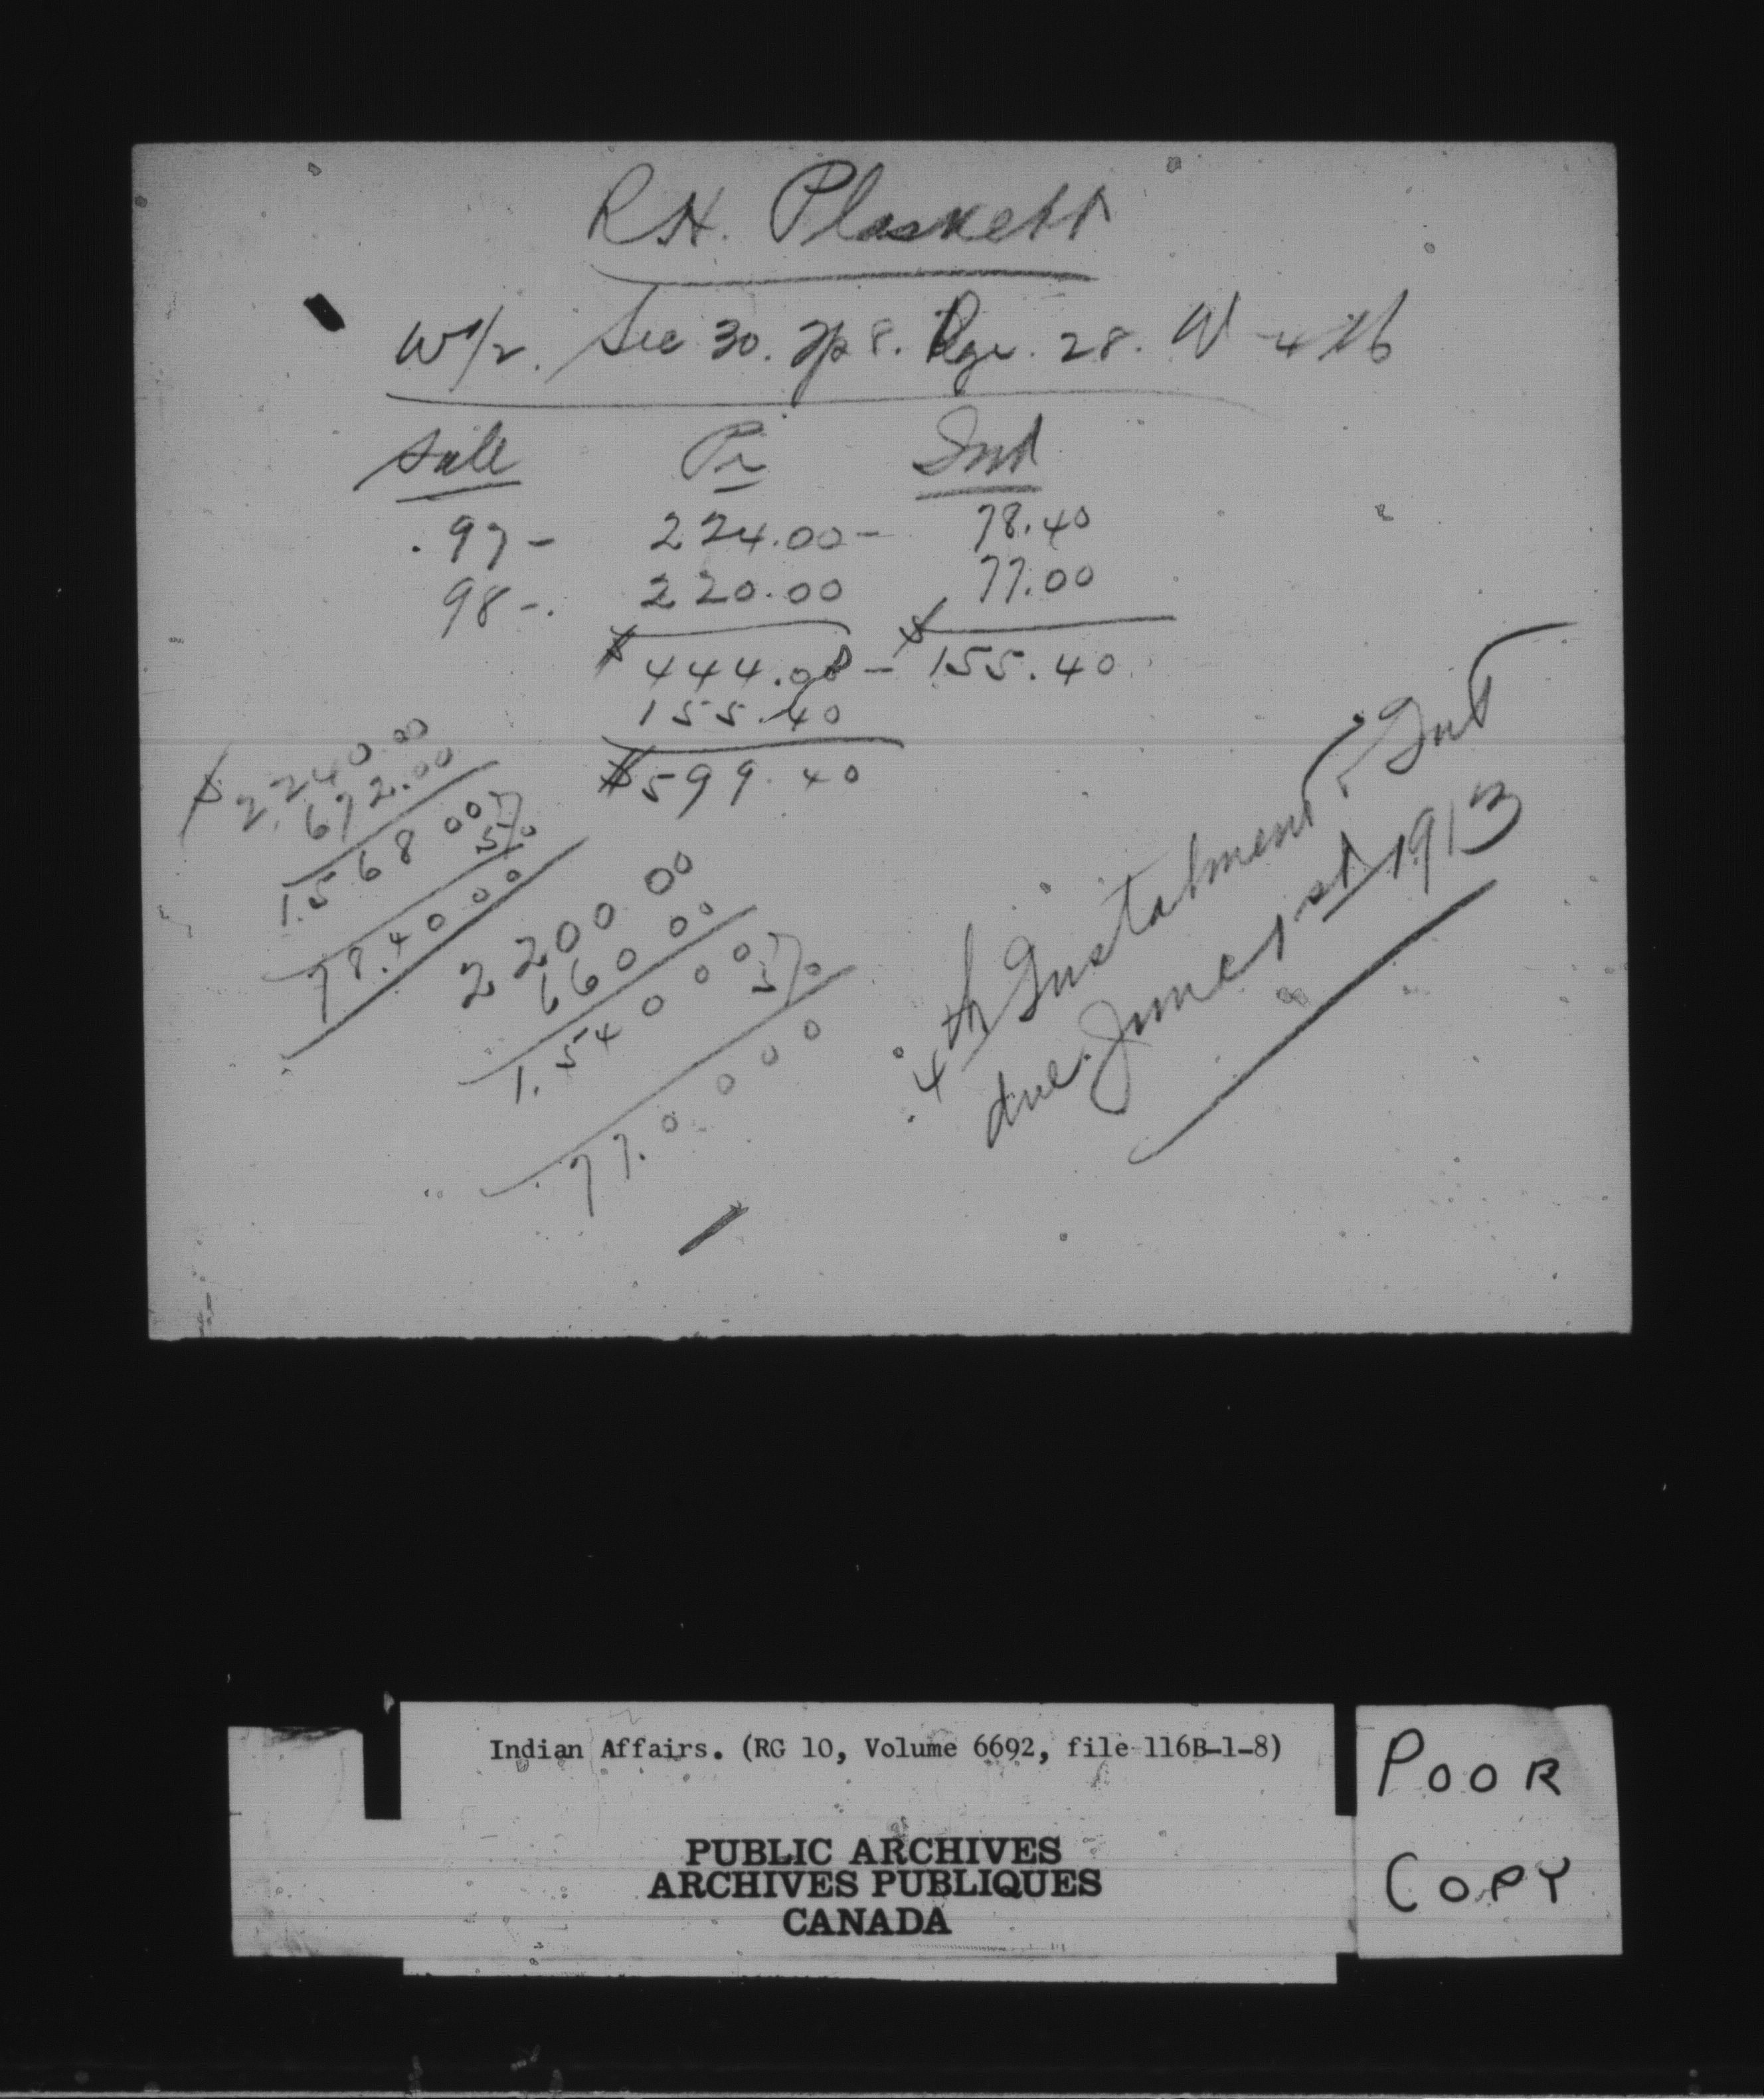 R.H. Plaskett
W 1/2. Sec 30. Tp 8. Rge. 28. W 4th
Sale Pr Int
97 - 224.00 - 78.40
98 - 220.00 77.00
$ 444.00 - $ 155.40
155.40
$ 599.40
$ 2240.00
672.00
1.568 00
5%
78.40 00
2200 00
660 00
1.540 00
5%
77.0 000
4th Instalment & Int
due June 1st 1913
Indian Affairs. (RG 10, Volume 6692, file 116B-1-8)
PUBLIC ARCHIVES
ARCHIVES PUBLIQUES
CANADA
POOR
COPY